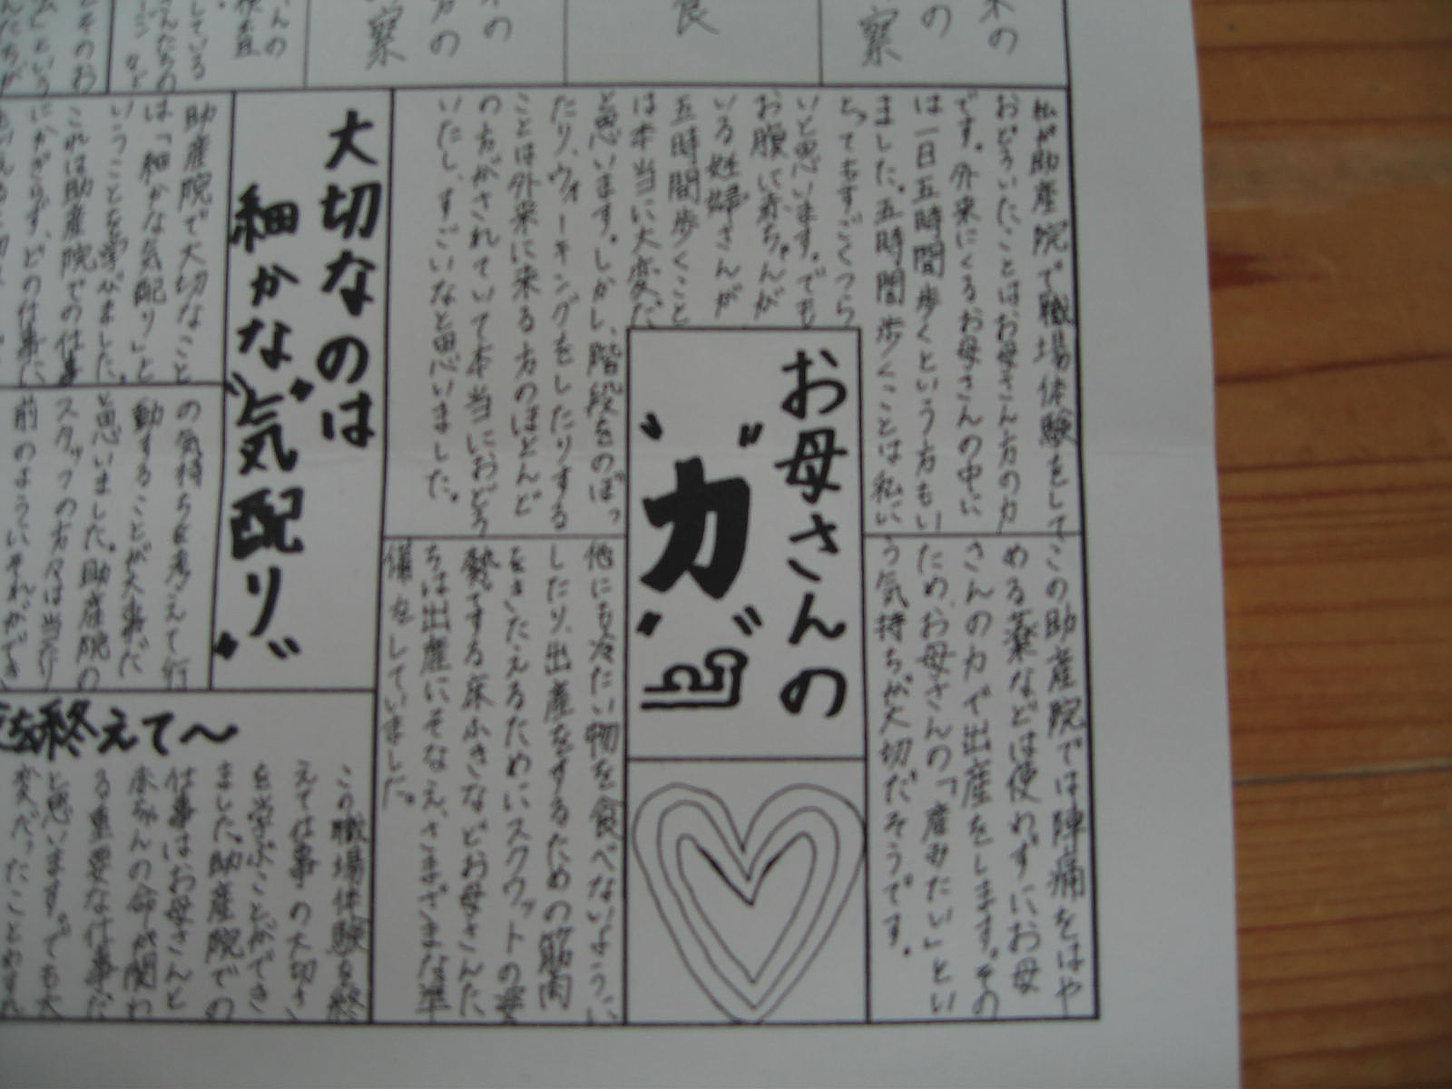 お母さんの
"力"
私が助産院で職場体験をして
おどろいたことは、お母さん方の力
です。外来にくるお母さんの中に
は一日五時間歩くという方もい
ました。五時間歩くことは私に
とってもすごくつら
いと思います。でも
お腹に赤ちゃんが
いる妊婦さんが
五時間歩くこと
は本当に大変だ
と思います。しかし、階段をのぼっ
たり、ウォーキングをしたりする
ことは外来に来る方のほとんど
の方がされていて本当におどろ
いたし、すごいなと思いました。
この助産院では陣痛をはや
める薬などは使わずにお母
さんの力で出産をします。その
ため、お母さんの「産みたい」とい
う気持ちが大切だそうです。
他にも冷たい物を食べないように
したり、出産をするための筋肉
をきたえるためにスクワットの姿
勢でする床ふきなどお母さんた
ちは出産にそなえ、さまざまな準
備をしていました。
大切なのは
細かな"気配り"
助産院で大切なこと
は「細かな気配り」と
いうことを学びました。
これは助産院での仕事
にかぎらず、どの仕事に
の気持ちを考えて行
動することが大事だ
と思いました。助産院の
スタッフの方々は当たり
前のようにそれができ
を終えて〜
この職場体験を終
えて仕事の大切さ
を学ぶことができ
ました。助産院での
仕事はお母さんと
赤ちゃんの命が関わ
る重要な仕事だ
と思います。でも大
変だったことわすれ